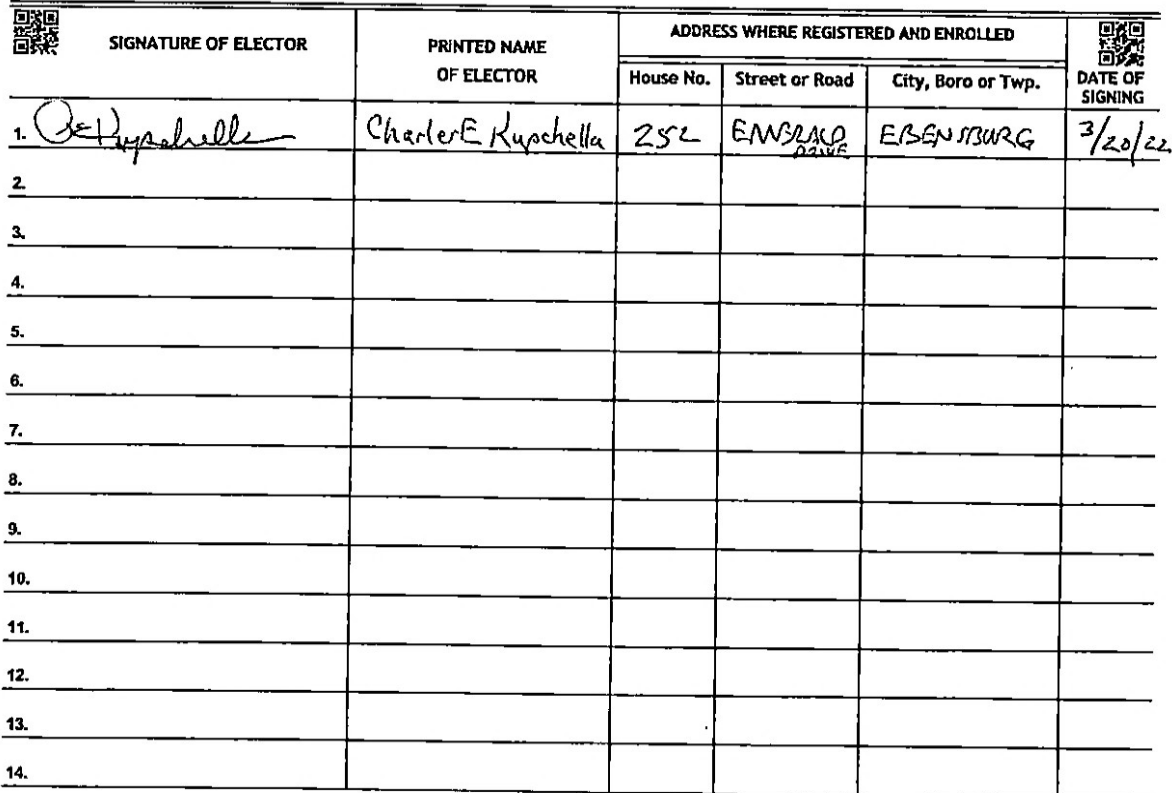 SIGNATURE OF ELECTOR
PRINTED NAME
OF ELECTOR
ADDRESS WHERE REGISTERED AND ENROLLED
House No.
Street or Road
City, Boro or Twp.
DATE OF
SIGNING
1. CEKupchella Charles E Kupchella 252 EMERALD DRIVE EBENSBURG 3/20/22
2.
3.
4.
5.
6.
7.
8.
9.
10.
11.
12.
13.
14.